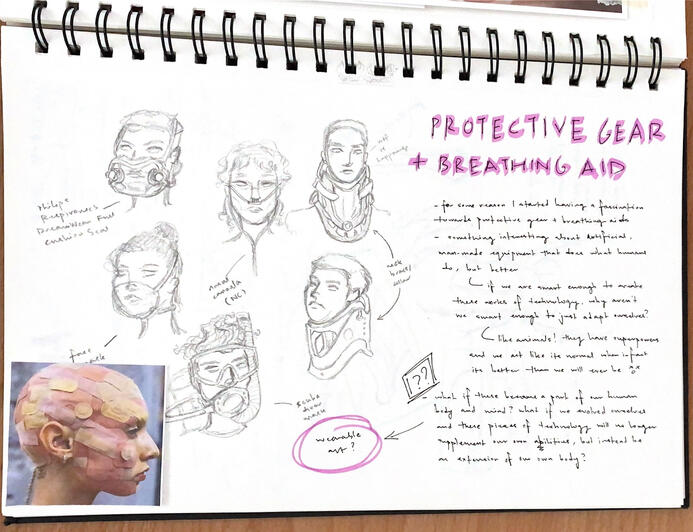 PROTECTIVE GEAR
+ BREATHING AID
- for some reason I started having a fascination
towards protective gear + breathing aids
- something interesting about artificial,
man-made equipment that does what humans
do, but better
if we are smart enough to create
these works of technology, why aren't
we smart enough to just adapt ourselves?
like animals! they have superpowers
and we act like its normal when infact
its better than we will ever be
!??
- what if these became a part of our human
body and mind? what if we evolved ourselves
and these pieces of technology will no longer
supplement our own abilities, but instead be
an extension of our own body?
wearable
art?
Philips
Respironics
DreamWear Full
Cushion Seal
nasal
cannula
(NC)
neck brace/
collar
face
mask
scuba
diver